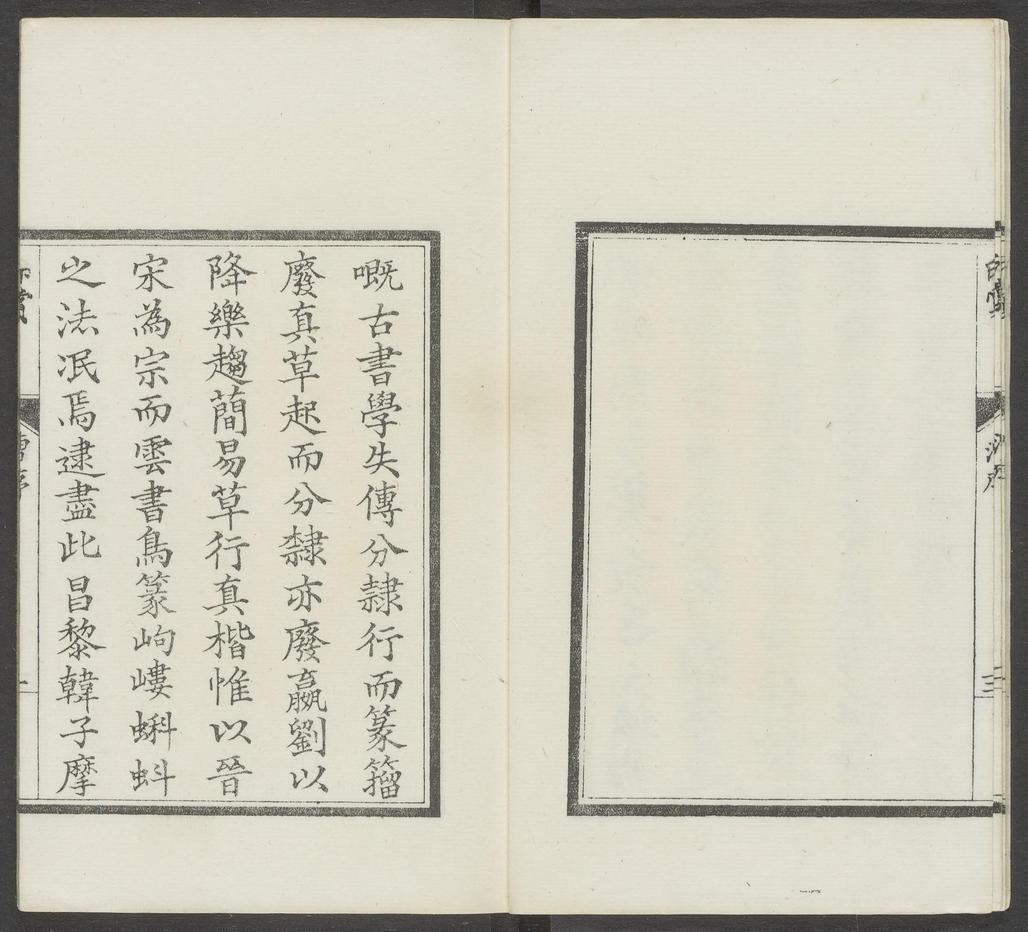 嘅古書學失傳分隷行而篆籀
廢真草起而分隸亦廢嬴劉以
降樂趨蕳易草行真楷惟以晉
宋為宗而雲書鳥篆岣嶁蝌蚪
之法泯焉逮盡此昌黎韓子摩